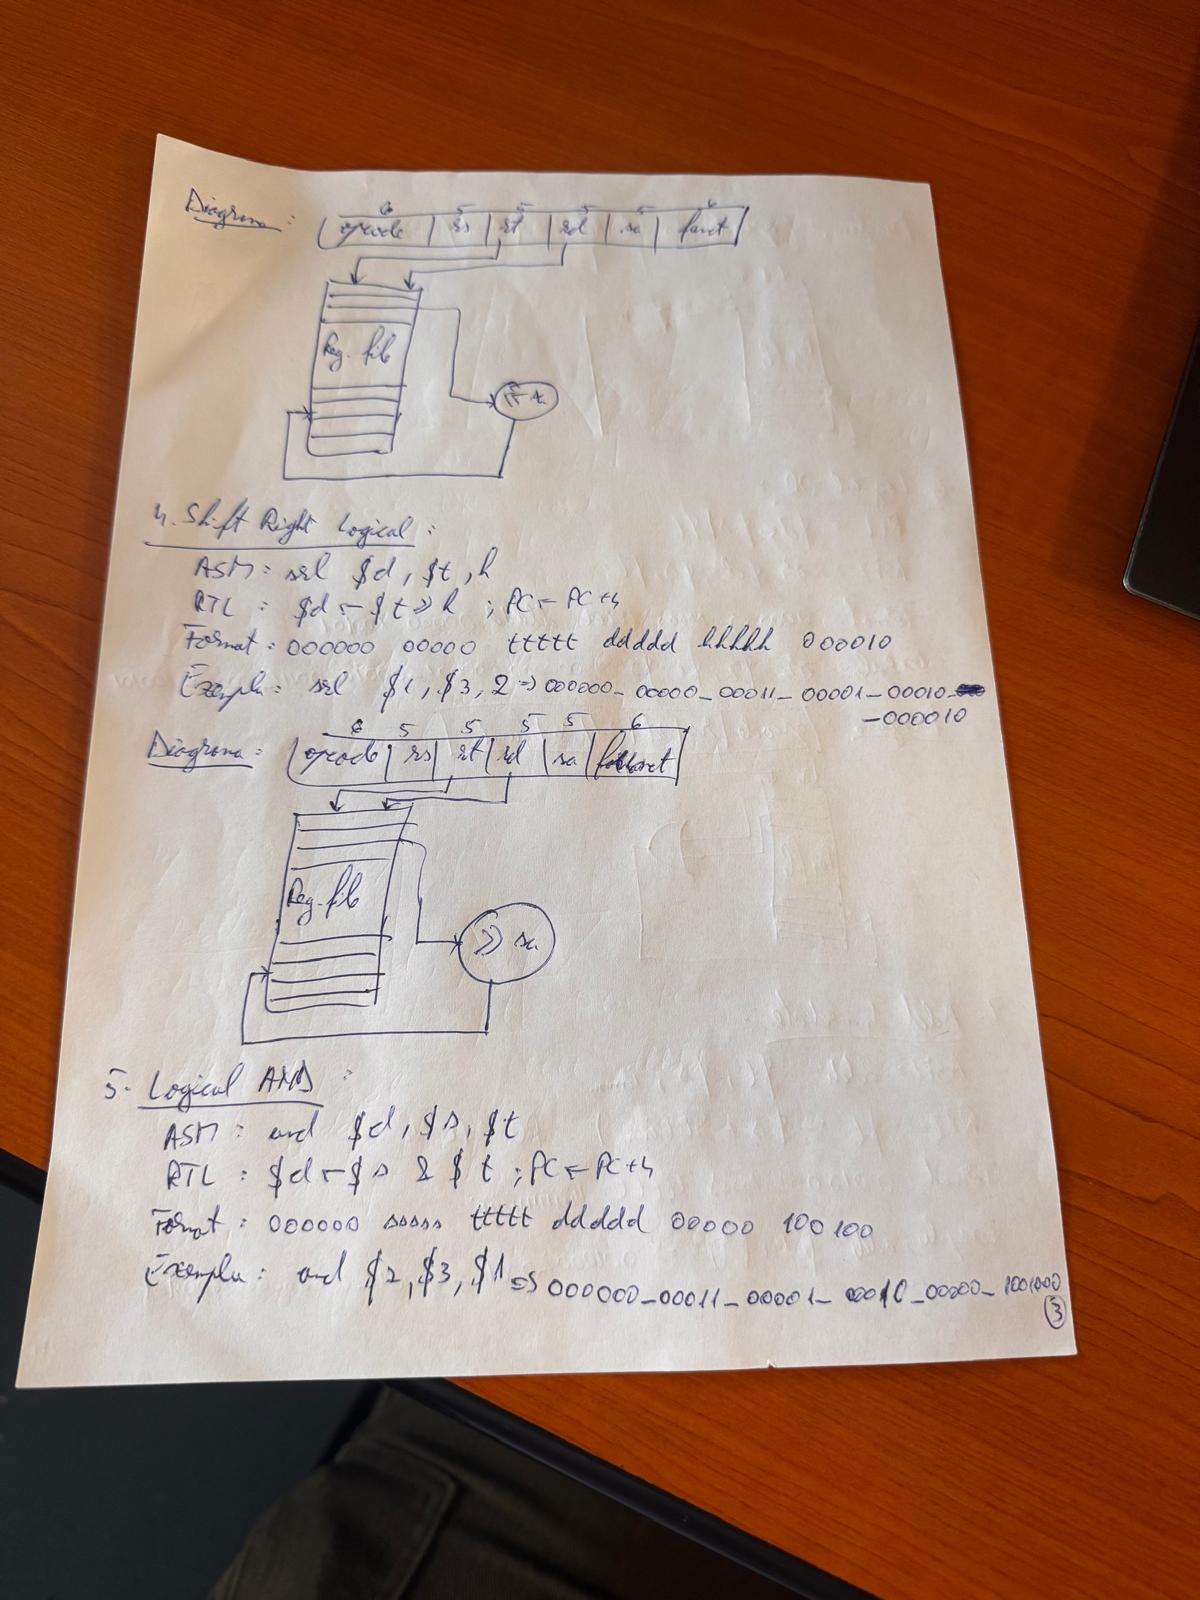 Diagrama :
6 5 5 5 5 6
opcode | rs | rt | rd | sa | funct
Reg. file
<< sa
4. Shift Right Logical :
ASM : srl $d, $t, h
RTL : $d ← $t >> h ; PC ← PC+4
Format : 000000 00000 ttttt ddddd hhhhh 000010
Exemplu : srl $1, $3, 2 => 000000_00000_00011_00001_00010
_000010
6 5 5 5 5 6
Diagrama : opcode | rs | rt | rd | sa | funct
Reg. file
>> sa
5. Logical AND :
ASM : and $d, $s, $t
RTL : $d ← $s & $t ; PC ← PC+4
Format : 000000 sssss ttttt ddddd 00000 100100
Exemplu : and $2, $3, $1 => 000000_00011_00001_00010_00000_1001000
3